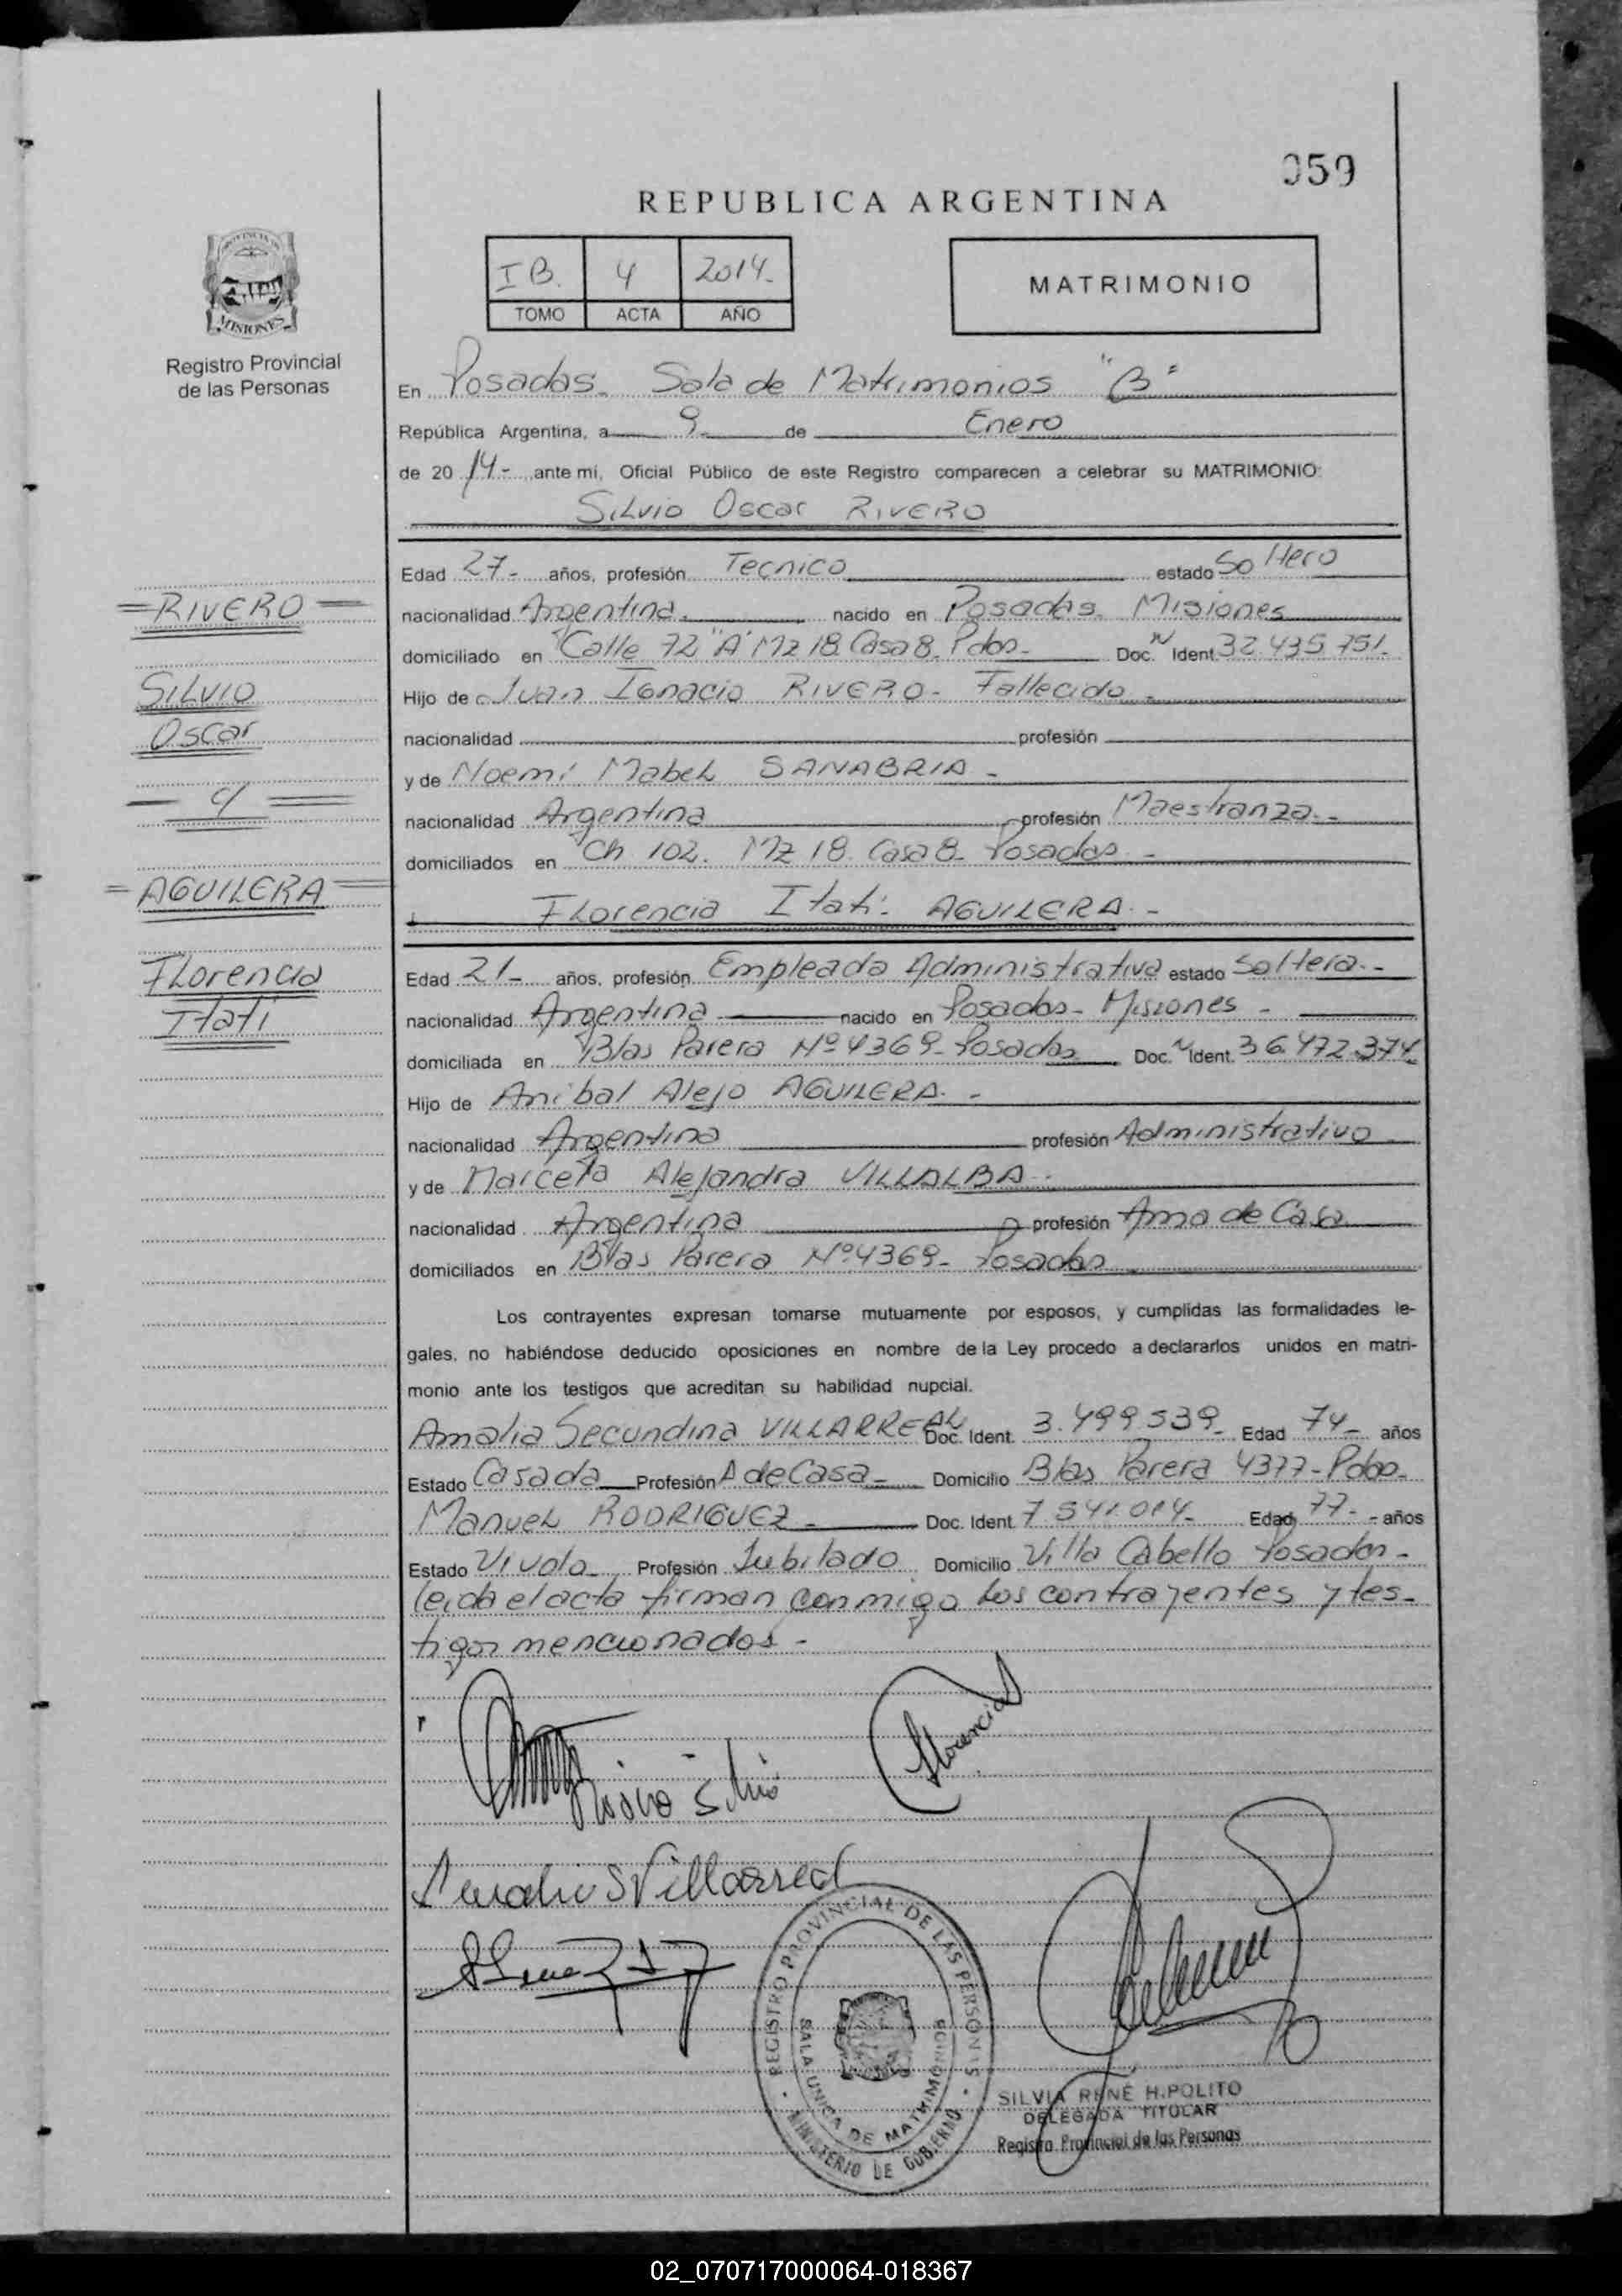 059
REPUBLICA ARGENTINA
PROVINCIA DE
MISIONES
Registro Provincial
de las Personas
I B. 4 2014.-
TOMO ACTA AÑO
MATRIMONIO
En Posadas.- Sala de Matrimonios "B"
República Argentina, a 9.- de Enero
de 2014.- ante mi, Oficial Público de este Registro comparecen a celebrar su MATRIMONIO:
Silvio Oscar RIVERO
Edad 27.- años, profesión Tecnico estado Soltero
=RIVERO=
nacionalidad Argentina.- nacido en Posadas. Misiones
domiciliado en Calle 72 "A" Mz 18. Casa 8. Pdas.- Doc. N Ident. 32.435.751.-
SILVIO
Hijo de Juan Ignacio RIVERO.- Fallecido.-
Oscar
nacionalidad profesión
y de Noemi Mabel SANABRIA.-
nacionalidad Argentina profesión Maestranza.-
domiciliados en Ch. 102. Mz 18. Casa 8.- Posadas.-
=AGUILERA=
Florencia Itati. AGUILERA.-
Florencia
Edad 21.- años, profesión Empleada Administrativa estado Soltera.-
Itati
nacionalidad Argentina nacido en Posadas.- Misiones.-
domiciliada en Blas Parera Nº 4369.- Posadas Doc. N Ident. 36.472.374
Hijo de Anibal Alejo AGUILERA.-
nacionalidad Argentina profesión Administrativo
y de Marcela Alejandra VILLALBA.-
nacionalidad Argentina profesión Ama de Casa
domiciliados en Blas Parera Nº 4369.- Posadas
Los contrayentes expresan tomarse mutuamente por esposos, y cumplidas las formalidades le-
gales, no habiéndose deducido oposiciones en nombre de la Ley procedo a declararlos unidos en matri-
monio ante los testigos que acreditan su habilidad nupcial.
Amalia Secundina VILLARREAL Doc. Ident. 3.499.539.- Edad 74.- años
Estado Casada Profesión A de Casa.- Domicilio Blas Parera 4377.- Pdas.-
Manuel RODRIGUEZ.- Doc. Ident. 7.541.014.- Edad 77.- años
Estado Viudo Profesión Jubilado Domicilio Villa Cabello Posadas.-
leida el acta firman conmigo los contrayentes y tes-
tigos mencionados.-
Silvio
Florencia
S Villarreal
REGISTRO PROVINCIAL DE LAS PERSONAS
SALA UNICA DE MATRIMONIOS
MINISTERIO DE GOBIERNO
SILVIA RENÉ H.POLITO
DELEGADA TITULAR
Registro Provincial de las Personas
02_070717000064-018367